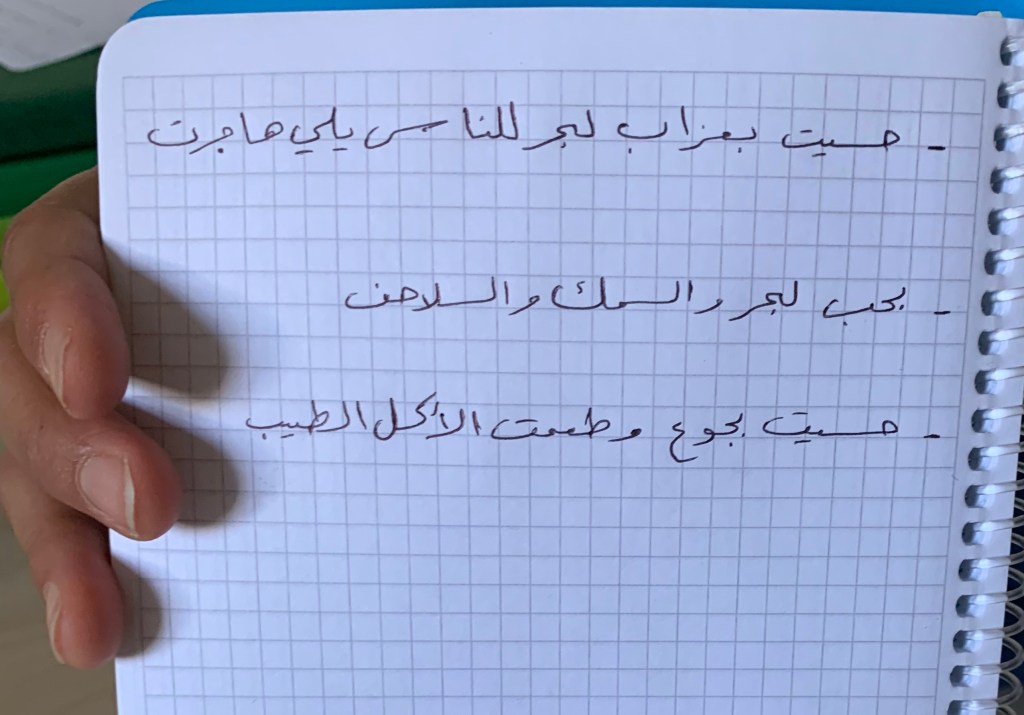 - حسيت بعزاب لبحر للناس يلي هاجرت
- بحب لبحر والسمك والسلاحف
- حسيت بجوع وطعمت الأكل الطيب